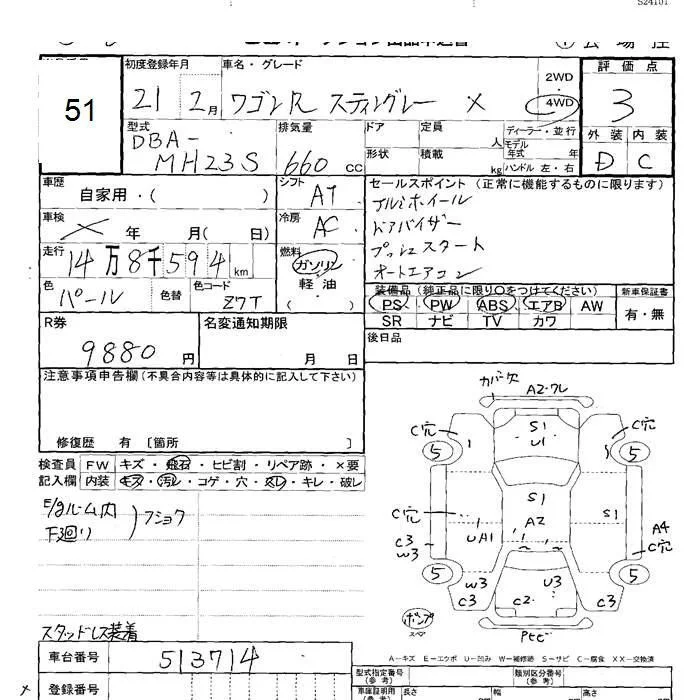 S24101
51
初度登録年月
21 2月
車名・グレード
ワゴンR スティングレー X
2WD
4WD
評価点
3
外装 内装
D C
型式
DBA-
MH23S
排気量
660 cc
ドア 定員 人
形状 積載 kg
ディーラー・並行
モデル年式 年
ハンドル 左・右
車歴
自家用・( )
シフト
AT
セールスポイント (正常に機能するものに限ります)
アルミホイール
ドアバイザー
プッシュスタート
オートエアコン
車検
年 月( 日)
冷房
AC
走行
14万8千594 km
燃料
ガソリン
軽・油
( )
色
パール
色替
色コード
Z7T
装備品 (純正品に限り○をつけてください)
PS PW ABS エアB AW
SR ナビ TV カワ
新車保証書
有・無
R券
9880 円
名変通知期限
月 日
後日品
注意事項申告欄 (不具合内容等は具体的に記入して下さい)
修復歴 有 [箇所 ]
検査員 FW キズ・飛石・ヒビ割・リペア跡・×要
記入欄 内装 キズ・汚レ・コゲ・穴・スレ・キレ・破レ
E/gルーム内
下廻り
フショク
スタッドレス装着
カバー欠
A2・ワレ
C穴
S1
U1
C穴
5
1
5
C穴
S1
S1
A2
UA1
A4
C穴
C3
W3
5
5
W3
U3
C3
C2
C3
ポンプ
スペア
A-キズ E-エクボ U-凹み W-補修跡 S-サビ C-腐食 XX-交換済
車台番号
513714
登録番号
型式指定番号
(参考)
類別区分番号
(参考)
車庫証明用
(参考)
長さ
幅
高さ